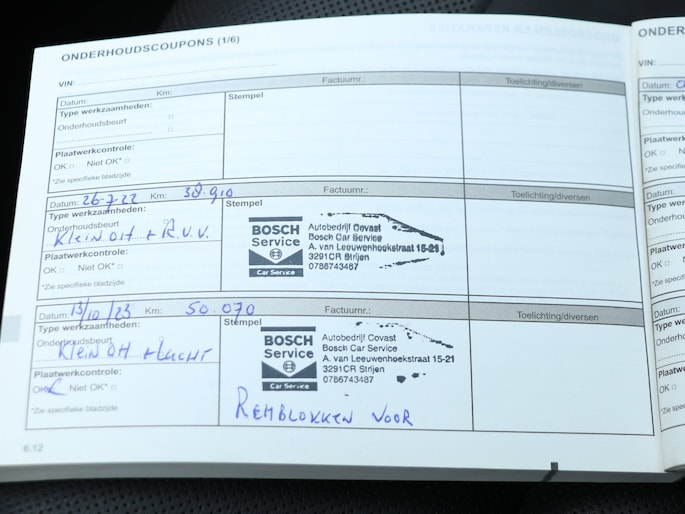 ONDERHOUDSCOUPONS (1/6)
VIN:
Datum: Km: Factuurnr.: Toelichting/diversen
Type werkzaamheden: Stempel
Onderhoudsbeurt
Plaatwerkcontrole:
OK □ Niet OK* □
*Zie specifieke bladzijde
Datum: 26-7-22 Km: 38.910 Factuurnr.: Toelichting/diversen
Type werkzaamheden: Stempel
Onderhoudsbeurt
Klein OH + R.V.V.
Plaatwerkcontrole:
OK □ Niet OK* □
*Zie specifieke bladzijde
BOSCH
Service
Car Service
Autobedrijf Covast
Bosch Car Service
A. van Leeuwenhoekstraat 15-21
3291CR Strijen
0786743487
Datum: 13/10/23 Km: 50.070 Factuurnr.: Toelichting/diversen
Type werkzaamheden: Stempel
Onderhoudsbeurt
Klein OH + Lucht
Plaatwerkcontrole:
OK Niet OK* □
*Zie specifieke bladzijde
BOSCH
Service
Car Service
Autobedrijf Covast
Bosch Car Service
A. van Leeuwenhoekstraat 15-21
3291CR Strijen
0786743487
REMBLOKKEN VOOR
6.12
VIN:
Datum: